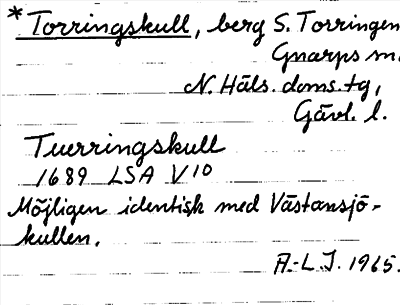 *Torringskull, berg S. Torringen
Gnarps sn.
N. Häls. doms.tg,
Gävl. l.
Tuerringskull
1689 LSA V10
Möjligen identisk med Västansjö-
kullen.
A.-L. J. 1965.